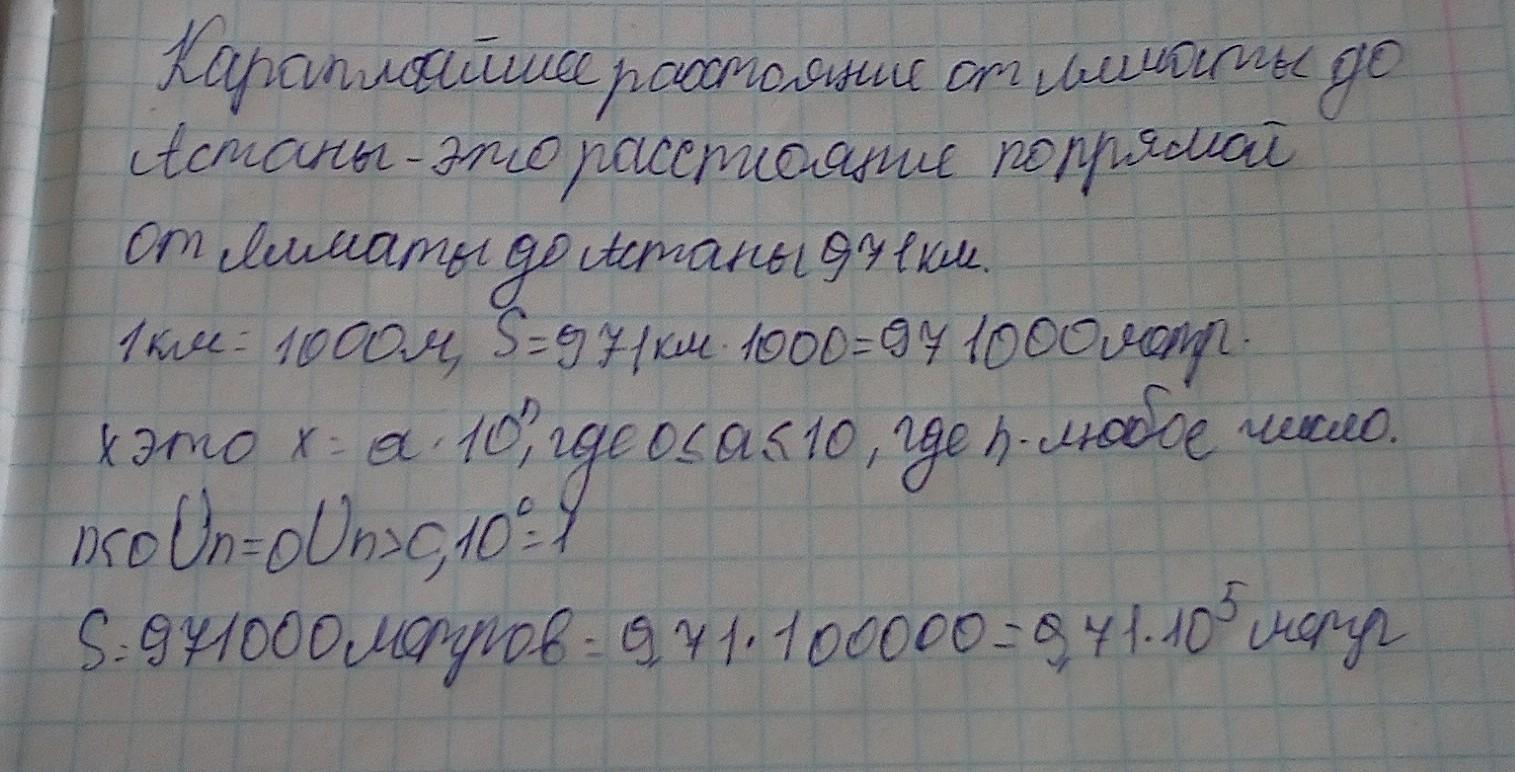 Кратчайшее расстояние от Алматы до
Астаны - это расстояние по прямой
от Алматы до Астаны 971 км.
1 км = 1000 м, S = 971 км · 1000 = 971000 метр.
x это x = a · 10ⁿ, где 0 ≤ a ≤ 10, где n - любое число.
n<0 ∪ n=0 ∪ n>0, 10⁰ = 1
S = 971000 метров = 9,71 · 100000 = 9,71 · 10⁵ метр